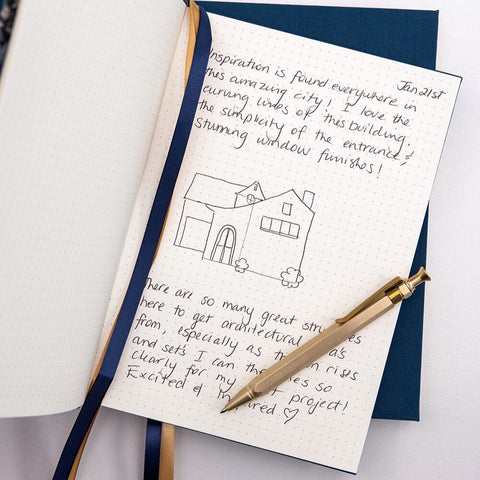 Jan 21st
Inspiration is found everywhere in
this amazing city! I love the
curving lines of this building,
the simplicity of the entrance, &
stunning window furnishes!
There are so many great
here to get architectural
from, especially as
and sets I can so
clearly for my project!
Excited & ♡